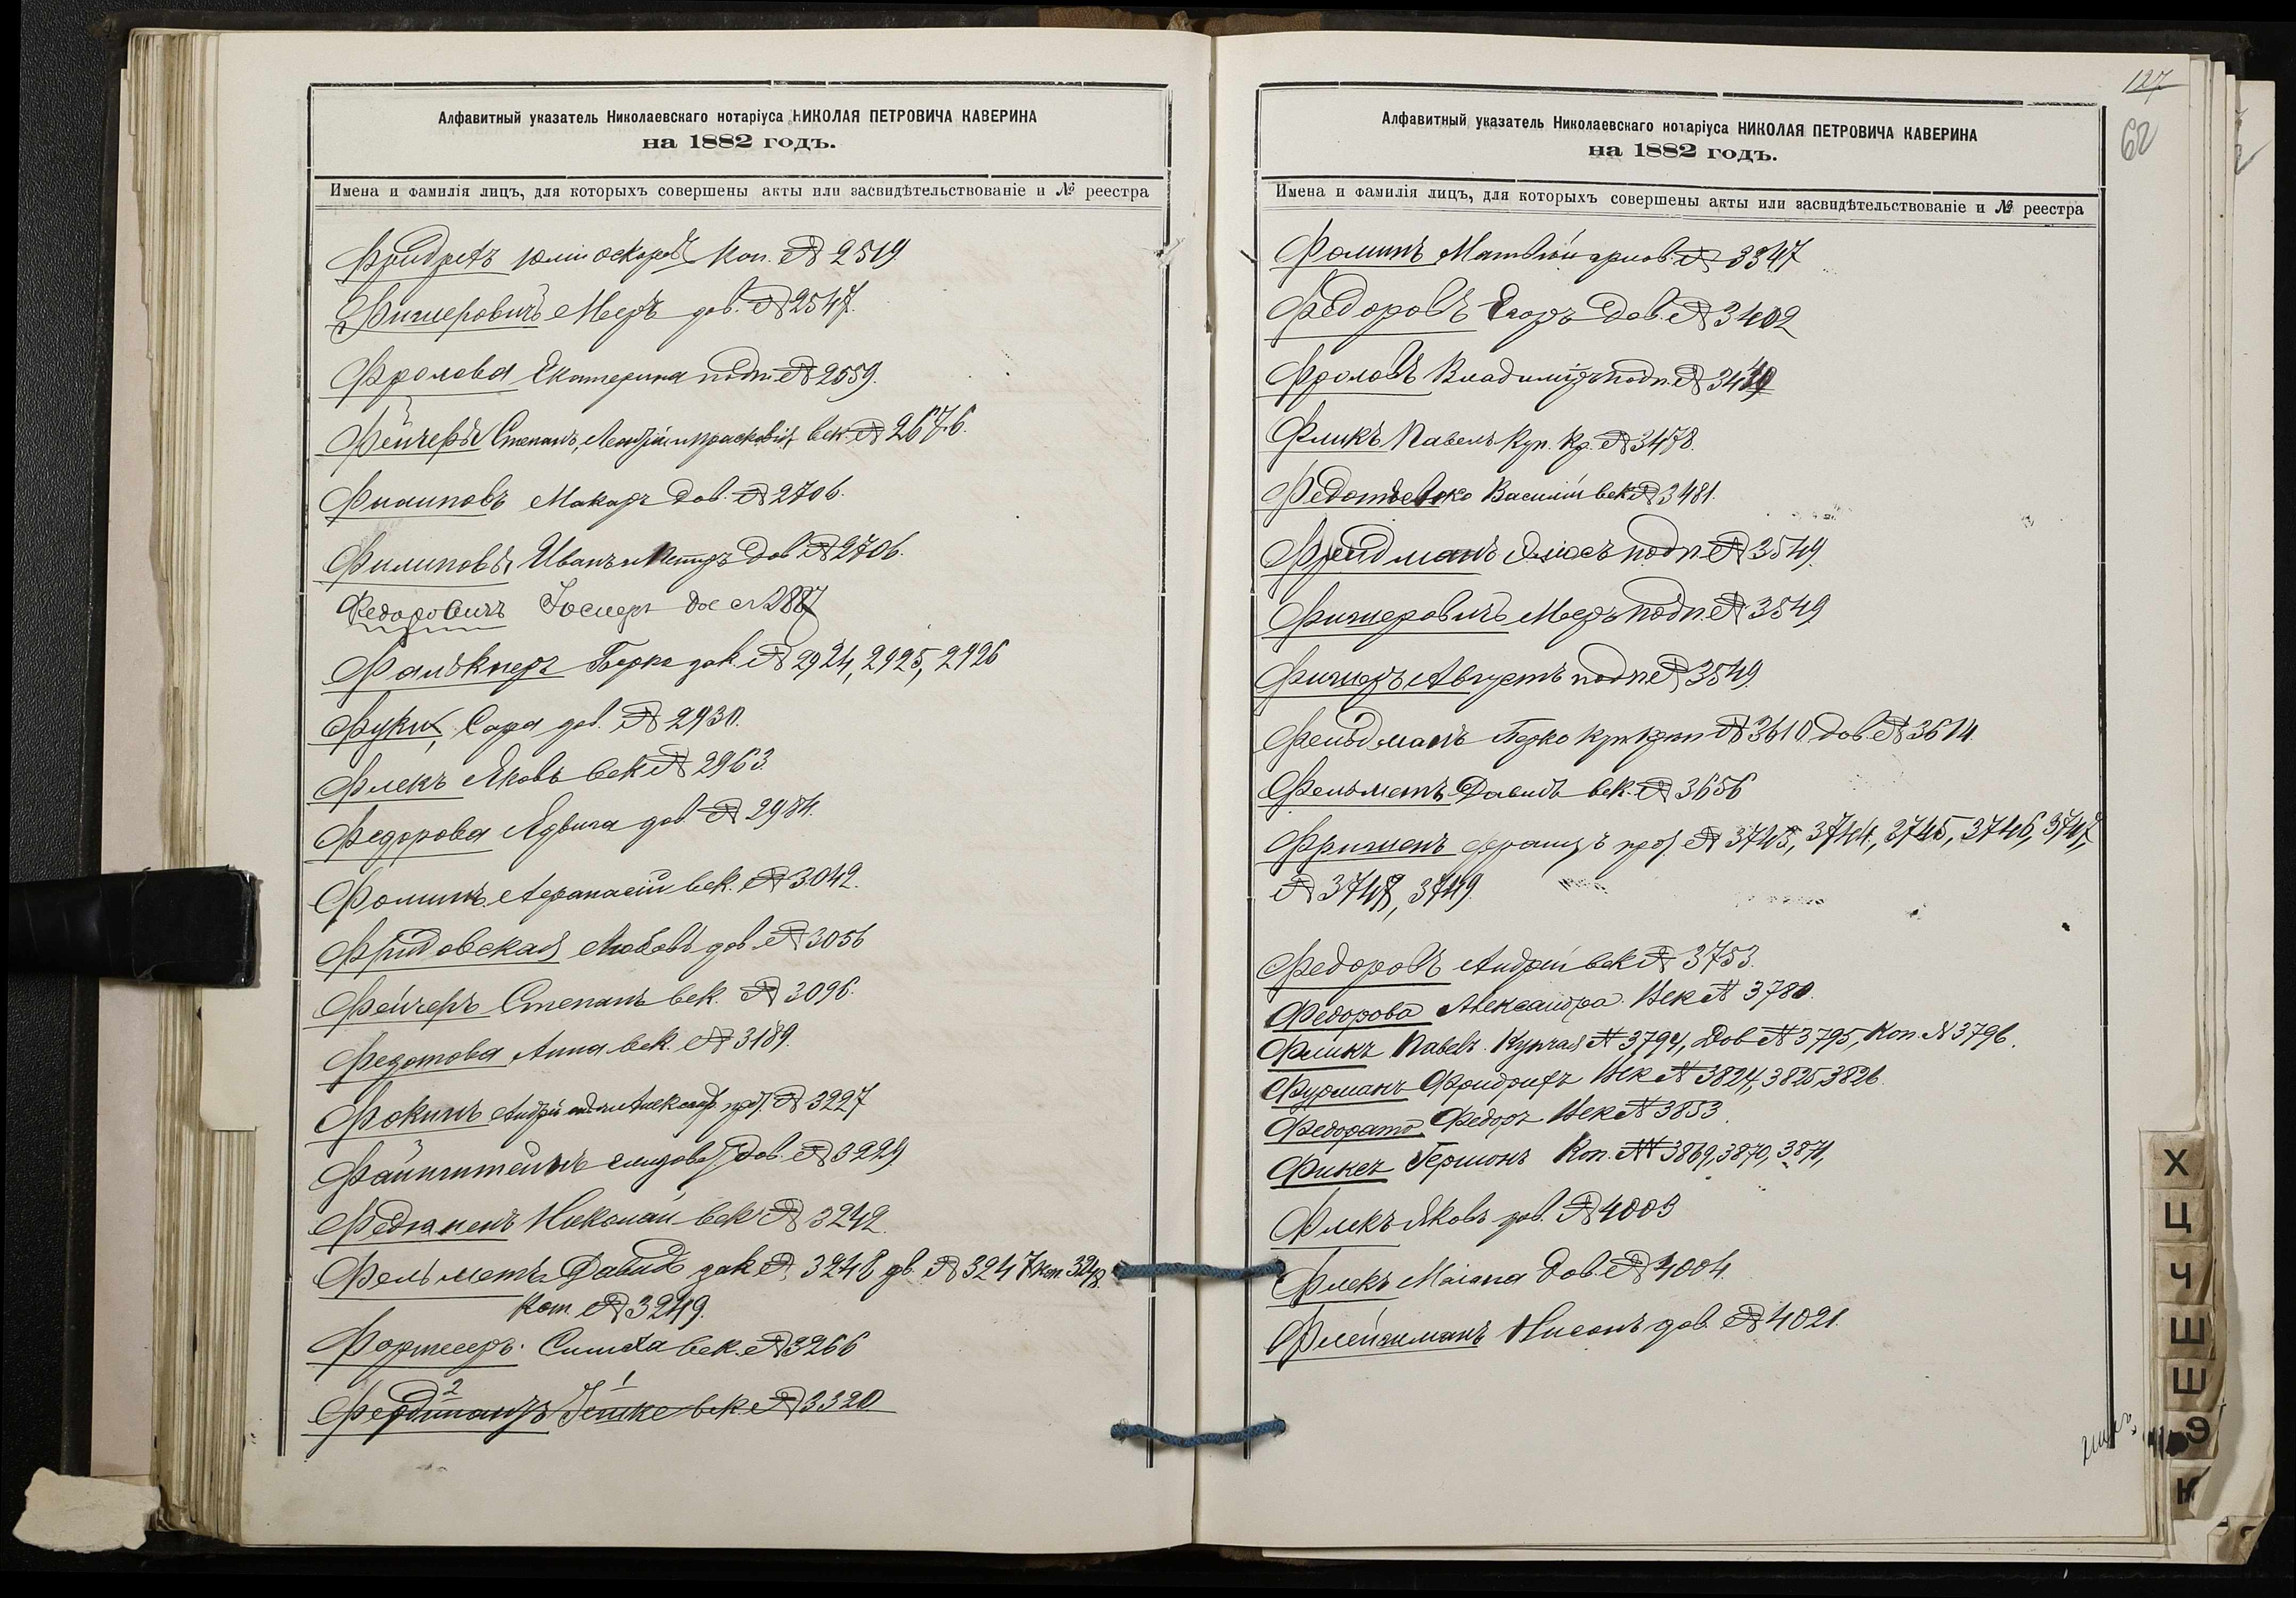 Алфавитный указатель Николаевскаго нотаріуса НИКОЛАЯ ПЕТРОВИЧА КАВЕРИНА
на 1882 годъ.
Имена и Фамилія лицъ, для которыхъ совершены акты или засвидѣтельствованіе и № реестра
Фридрихъ Юлій Оскаръ Коп. № 2519
Фишеровичъ Мееръ дов. № 2547.
Фролова Екатерина подп. № 2559.
Фейчеръ Степанъ, век. № 2676.
Филиповъ Макаръ Дов. № 2706.
Филиповы Иванъ и Петръ Дов № 2706.
Федоровичъ Іосифъ № 2887
ФальКнеръ Берка зак. № 2924, 2925, 2926
Фукс, Сара дов. № 2930.
Флекъ Яковъ век № 2963.
Федорова Ядвига дов. № 2984.
Фоминъ Афанасій век. № 3042.
Фридовская Любовь дов № 3056
Фейчеръ Степанъ век. № 3096.
Федотова Анна век. № 3189.
Фокинъ Андрей № 3227
Файнштейнъ Дов. № 3229
Николай век № 3242
Фельметъ Давидъ зак № 3246 дв. № 3247 коп. 3248.
Коп. № 3249.
Симха век. № 3266
2 1
Фердинандъ век. № 3320
127
62
Алфавитный указатель Николаевскаго нотаріуса НИКОЛАЯ ПЕТРОВИЧА КАВЕРИНА
на 1882 годъ.
Имена и Фамилія лицъ, для которыхъ совершены акты или засвидѣтельствованіе и № реестра
Фоминъ Матвѣй № 3347
Федоровъ Егоръ Дов. № 3402
Фроловъ Владиміръ подп. №
Фликъ Павелъ Куп. Кр. № 3478.
Василій век № 3481.
Фрейдманъ подп. № 3549.
Фишеровичъ Мееръ подп. № 3549
Фишеръ Августъ подп № 3549.
Фельдманъ Берко № 3610 Дов. № 3614
Фельметъ Давидъ век. № 3656
Францъ № 3743, 3744, 3745, 3746, 3747,
№ 3748, 3749.
Федоровъ Андрей век № 3753.
Федорова Александра. Век № 3780.
Фликъ Павелъ. Купчая № 3794, Дов № 3795, Коп. № 3796.
Фурманъ Фридрихъ Век № 3824, 3825 3826.
Федорато Федоръ Век № 3853.
Финкъ Гершонъ Коп. №№ 3869, 3870, 3871,
Флекъ Яковъ дов. № 4003
Флекъ Дов. № 4004.
Флейшманъ Нисонъ дов. № 4021.
Х
Ц
Ч
Ш
Щ
Э